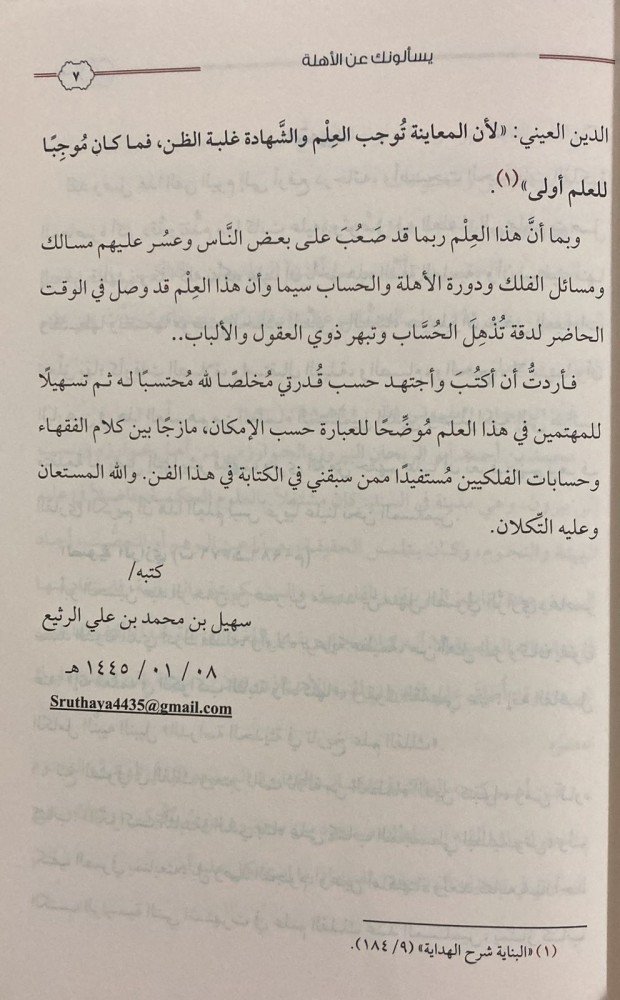 يسألونك عن الأهلة
٧
الدين العيني: «لأن المعاينة تُوجب العِلْم والشَّهادة غلبة الظن، فما كان مُوجِبًا
للعلم أولى»(١).
وبما أنَّ هذا العِلْم ربما قد صَعُبَ على بعض النَّاس وعسُر عليهم مسالك
ومسائل الفلك ودورة الأهلة والحساب سيما وأن هذا العِلْم قد وصل في الوقت
الحاضر لدقة تُذْهِلَ الحُسَّاب وتبهر ذوي العقول والألباب..
فأردتُّ أن أكْتُبَ وأجتهد حسب قُدرتي مُخلصًا لله مُحتسبًا له ثم تسهيلًا
للمهتمين في هذا العلم مُوضِّحًا للعبارة حسب الإمكان، مازجًا بين كلام الفقهاء
وحسابات الفلكيين مُستفيدًا ممن سبقني في الكتابة في هذا الفن. والله المستعان
وعليه التِّكلان.
كتبه/
سهيل بن محمد بن علي الرثيع
٠٨ / ٠١ / ١٤٤٥ هـ
Sruthaya4435@gmail.com
(١) «البناية شرح الهداية» (٩/ ١٨٤).